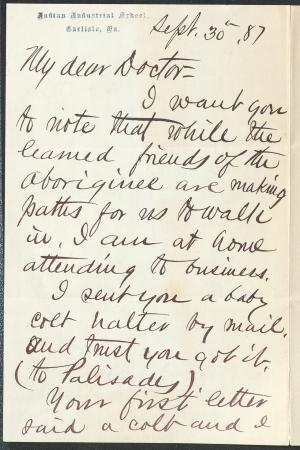 Indian Industrial School,
Carlisle, Pa.
Sept. 30, '87
My dear Doctor—
I want you
to note that while the
learned friends of the
aboriginee are making
paths for us to walk
in. I am at home
attending to business.
I sent you a baby
colt halter by mail.
and trust you got it.
(to Palisades)
Your first letter
said a colt and I